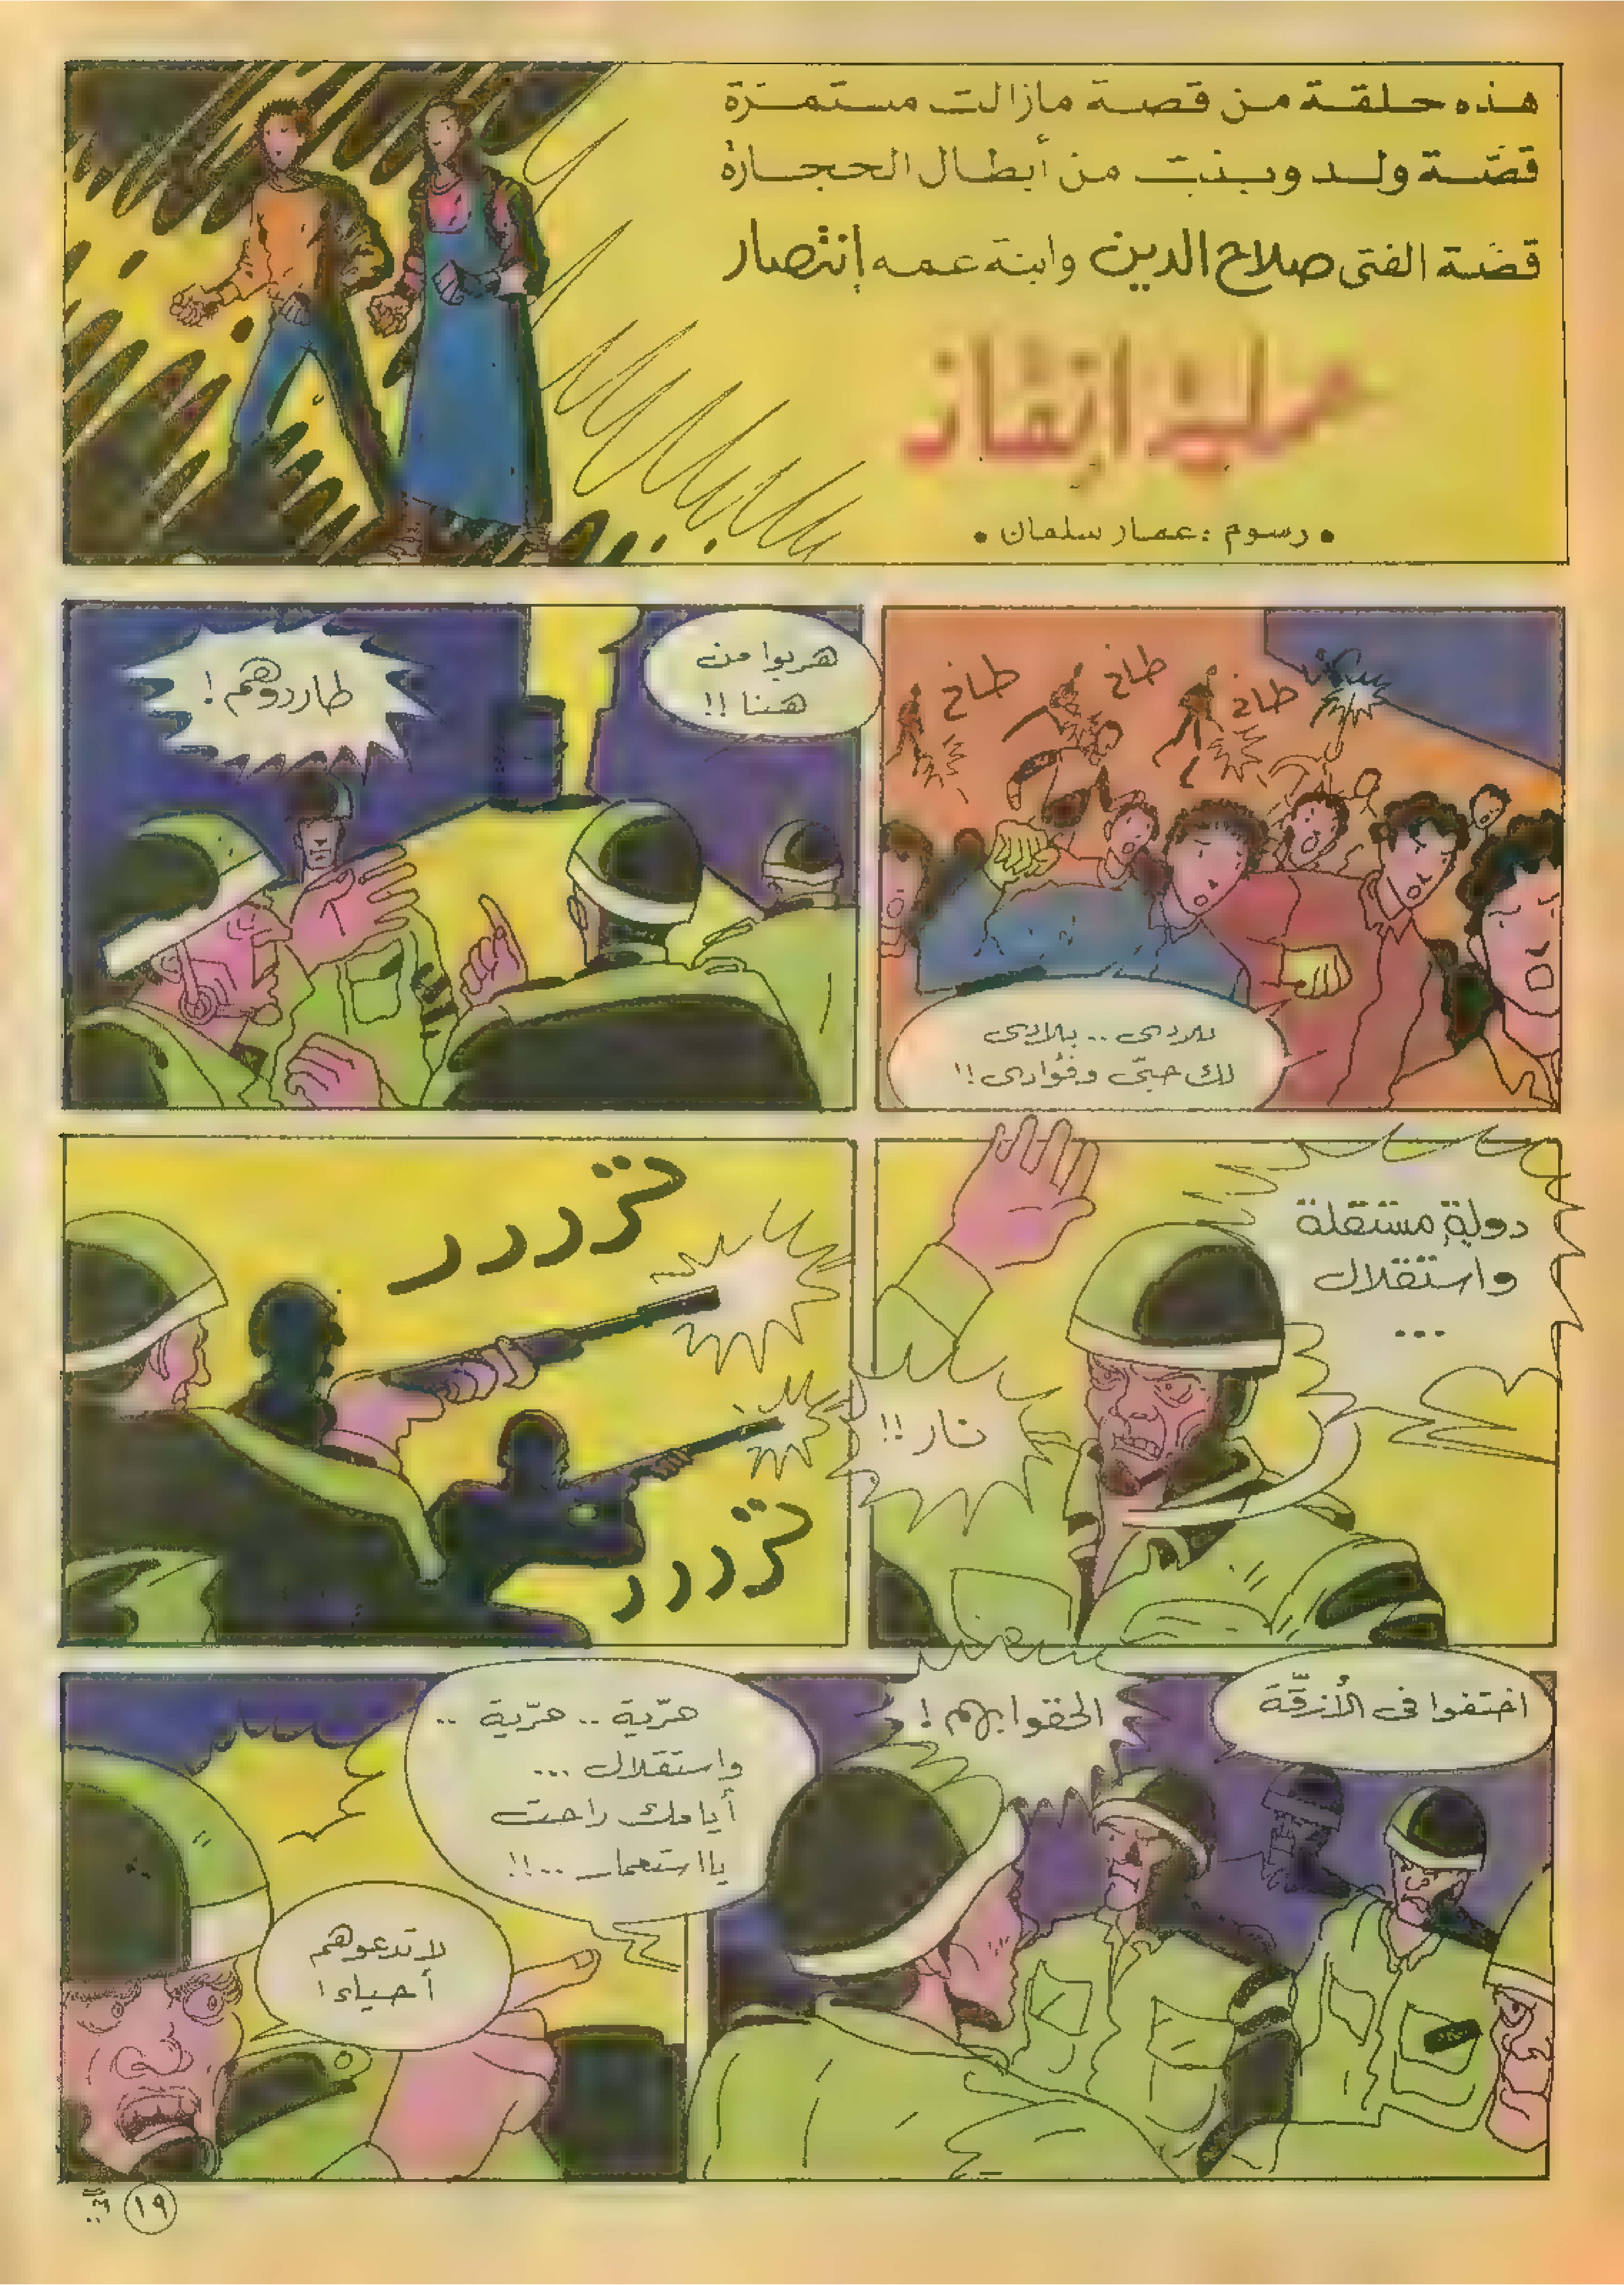 هذه حلقة من قصة مازالت مستمرّة
قصّة ولد وبنت من أبطال الحجارة
قصّة الفتى صلاح الدين وابنة عمه إنتصار
عملية إنقاذ
• رسوم : عمار سلمان •
طاخ طاخ طاخ
بلادى .. بلادى
لك حبّى وفؤادى !!
هربوا من
هنا !!
طاردوهم !
دولة مستقلة
واستقلال
...
نار !!
تررررر
تررررر
اختفوا فى الأزقّة
الحقوا بهم !
حرّية .. حرّية ..
واستقلال ...
أيامك راحت
يا استعمار ..!!
لا تدعوهم
أحياء !
١٩